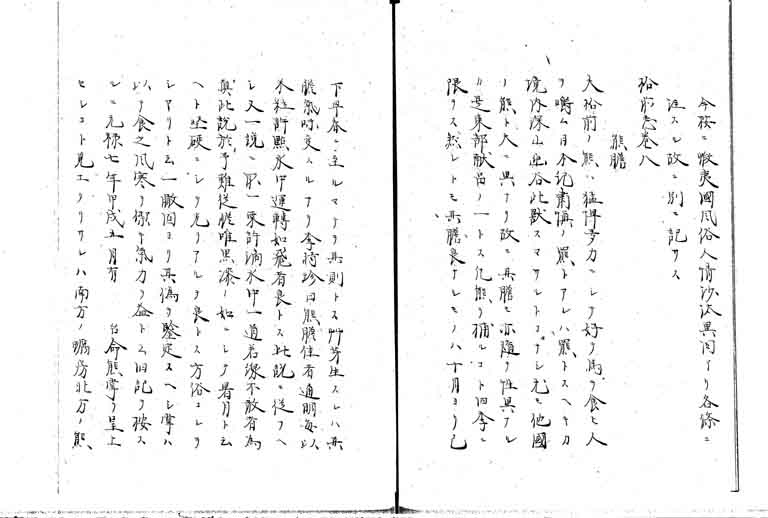 今按ニ蝦夷國風俗人情沙汰異同アリ各條ニ
注スル故ニ別ニ記サス
松前志巻八
熊膽
大松前ノ熊ハ猛悍多力ニシテ好テ馬ヲ食ヒ人
ヲ嚙ム日本記肅愼ノ羆トアレハ羆トスヘキカ
境内深山幽谷此獣スマサルトコナシ尤モ他國
ノ熊ト大ニ異ナリ故ニ其膽モ亦随テ性異ナレ
ハ是東部献品ノ一トス凡熊ヲ捕ルコト四季ニ
限ラス然レトモ其膽良ナルモノハ十月ヨリ已
下早春ニ至ルマテヲ其則トス艸芽生スレハ其
膽氣味変スルナリ李時珍曰熊膽佳者通明毎以
米粒許點水中運轉如飛者良トス此説ニ従フヘ
シ又一説ニ取一粟許滴水中一道若線不散者為
真此説於予難従膽唯黒漆ノ如ニシテ者月ト云
ヘト堅硬ニシテ光リアルヲ良トス方俗コレヲ
シヤリト云一撒回ヨリ其偽ヲ鑒定スヘシ掌ハ
以テ食之風寒ヲ禦キ氣力ヲ益ト云旧記ヲ按ス
ルニ元禄七年甲戌五月有 台命熊掌ヲ呈上
セシコト見エタリサレハ南方ノ 北方ノ熊